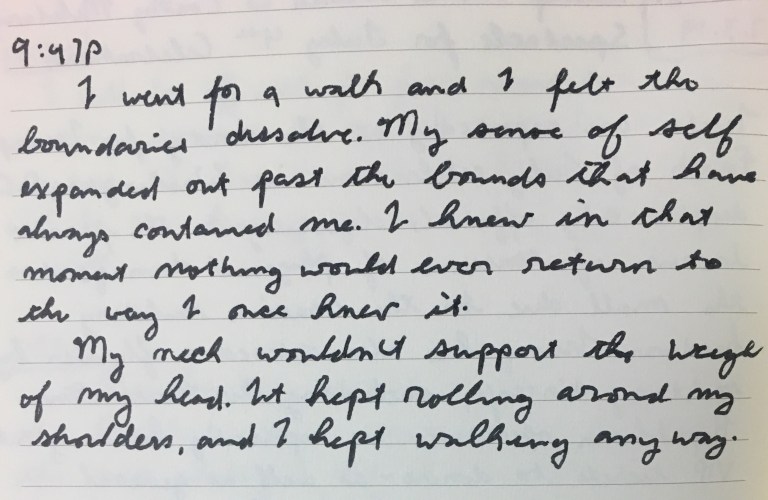 9:47P
I went for a walk and I felt the
boundaries dissolve. My sense of self
expanded out past the bounds that have
always contained me. I knew in that
moment nothing would ever return to
the way I once knew it.
My neck wouldn't support the weigh
of my head. It kept rolling around my
shoulders, and I kept walking any way.